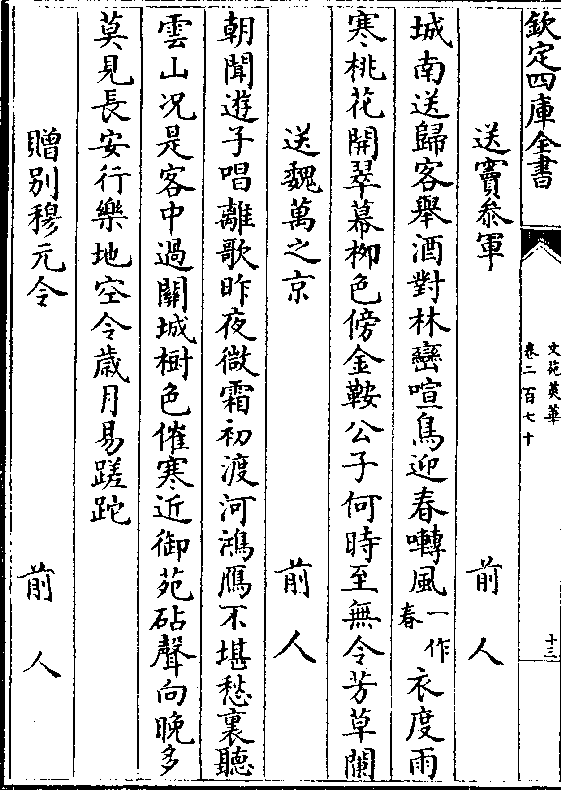 欽定四庫全書
文苑英華
卷二百七十
十三
送竇叅軍 前人
城南送歸客舉酒對林巒喧鳥迎春囀風一作春衣度雨
寒桃花開翠幕柳色傍金鞍公子何時至無令芳草闌
送魏萬之京 前人
朝聞遊子唱離歌昨夜微霜初渡河鴻鴈不堪愁裏聽
雲山况是客中過關城樹色催寒近御苑砧聲向晚多
莫見長安行樂地空令歲月易蹉跎
贈别穆元令 前人